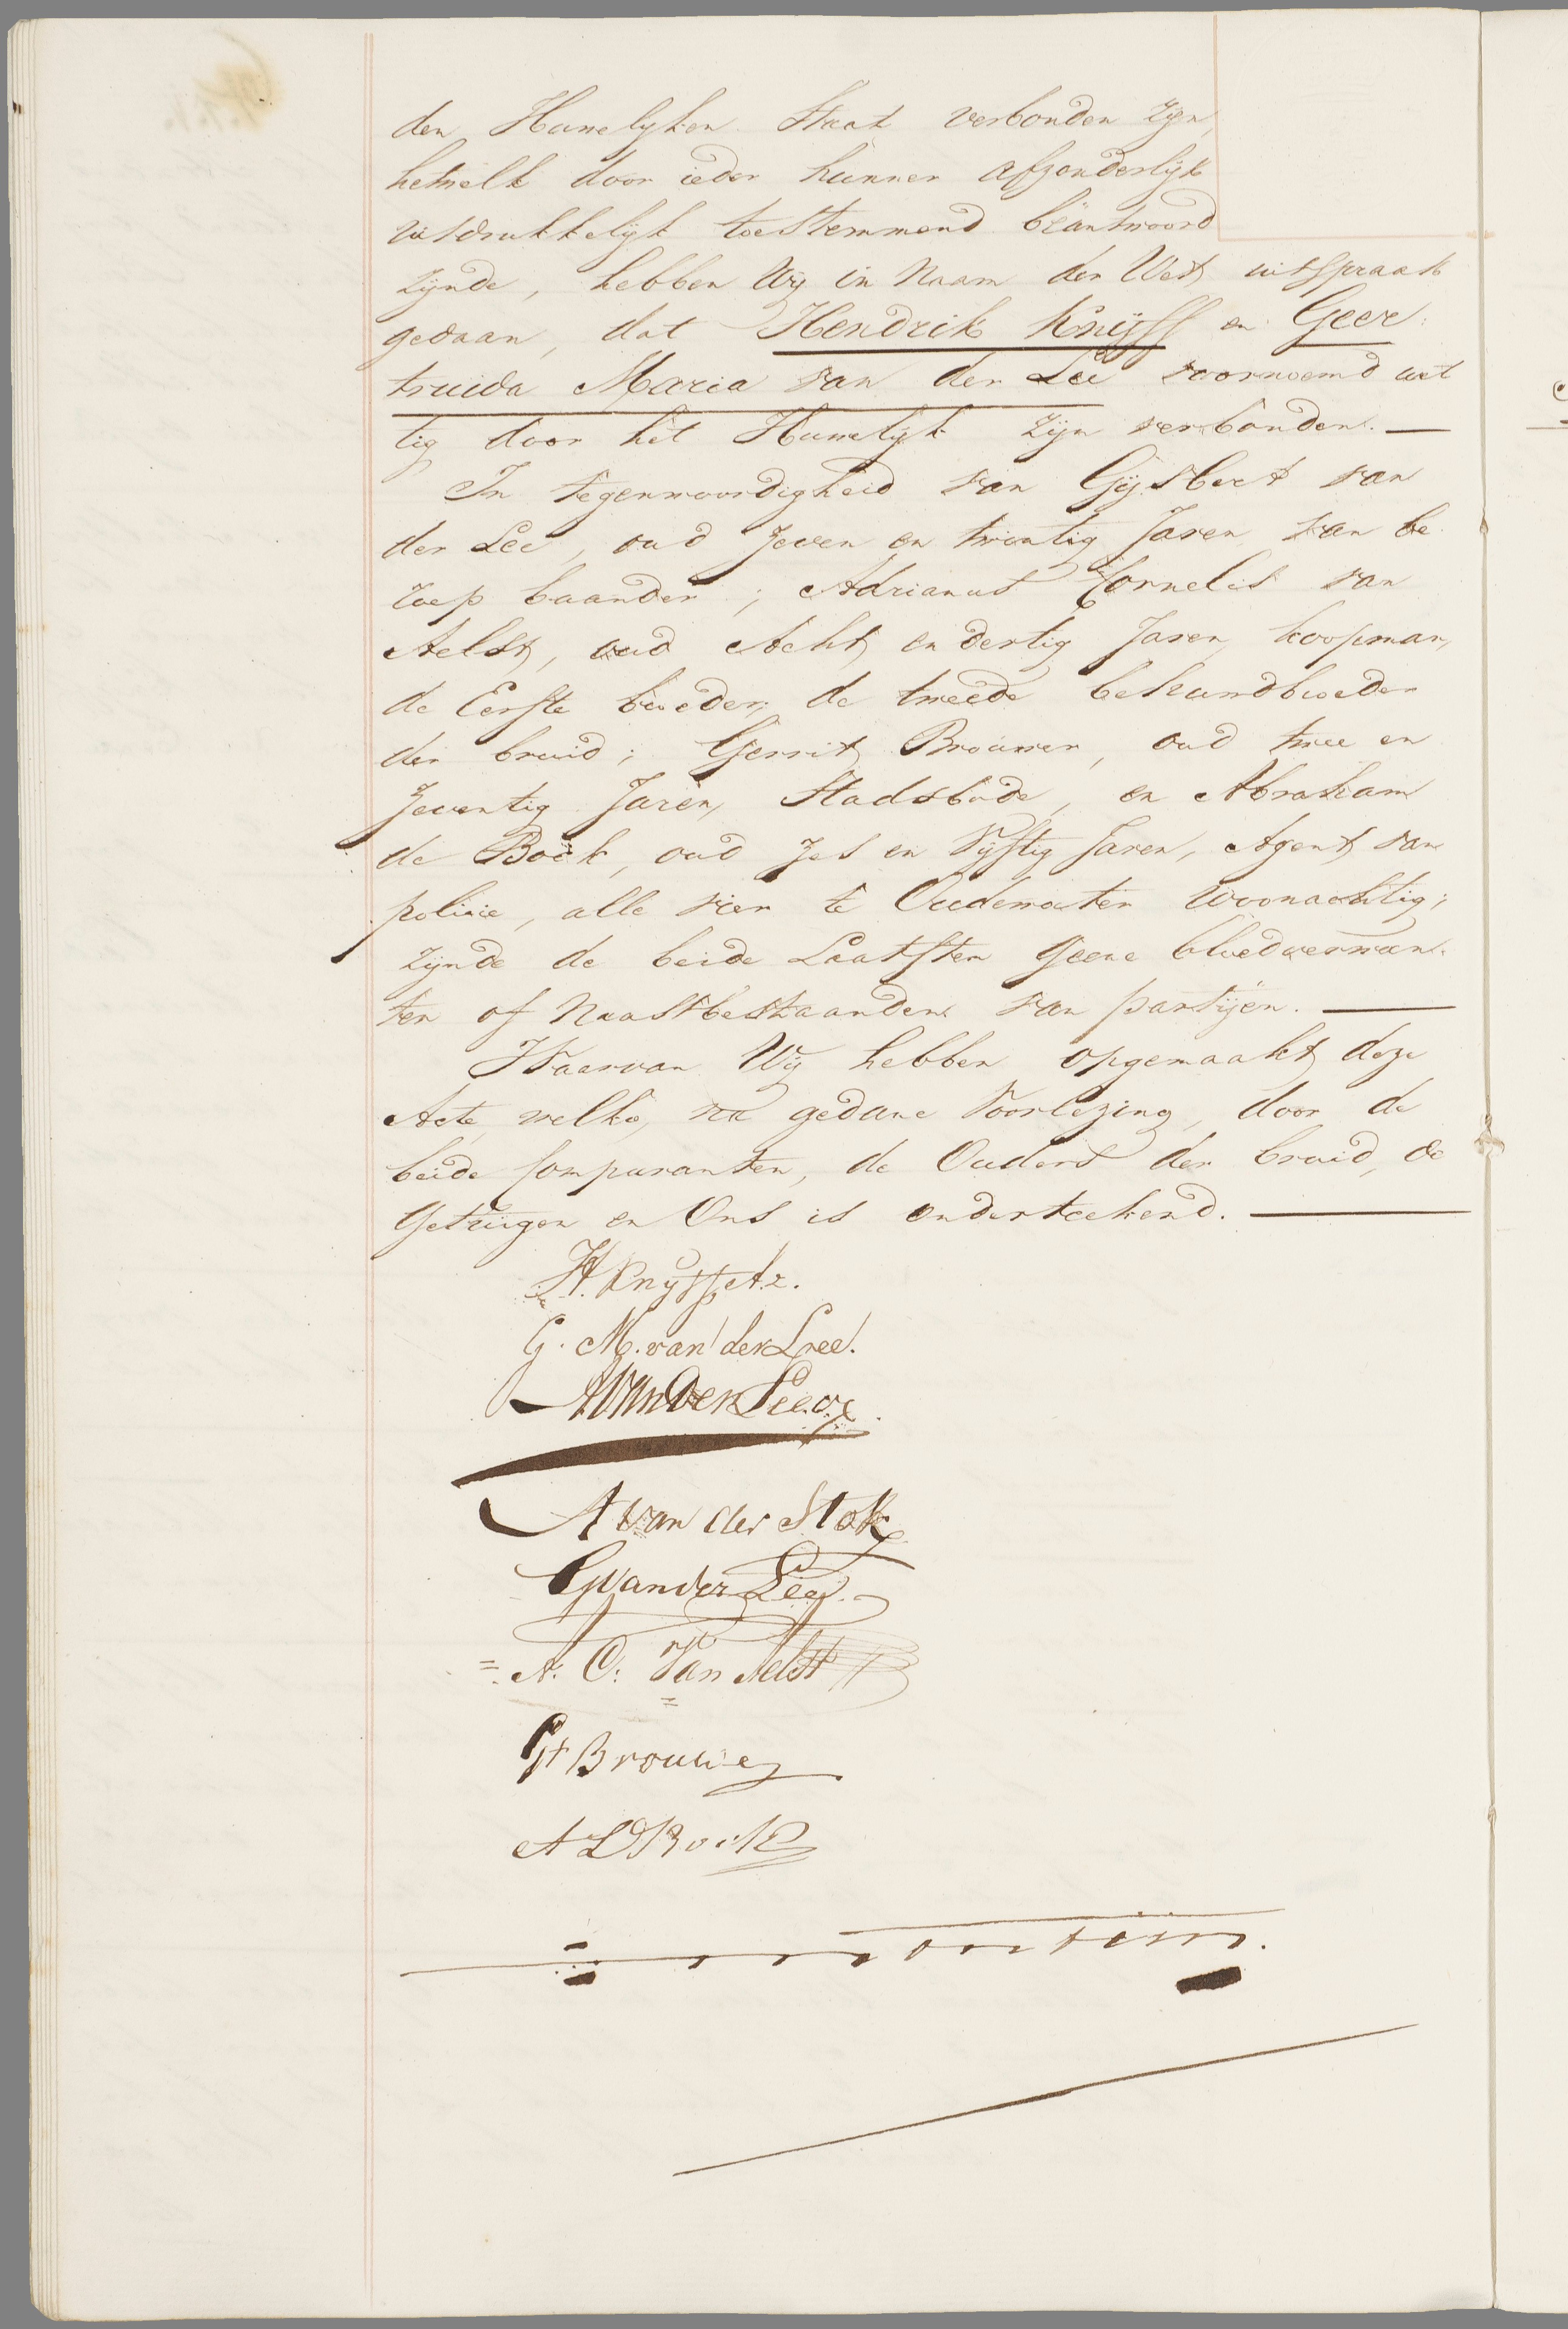 den Huwelyken Staat verbonden zyn,
hetwelk door ieder hunner afzonderlyk
uitdrukkelyk toestemmend beäntwoord
zynde, hebben Wy in Naam der Wet uitspraak
gedaan, dat Hendrik Knijff en Geer
truida Maria van der Lee voornoemd wet
tig door het Huwelyk zyn verbonden. —
In tegenwoordigheid van Gijsbert van
der Lee, oud Zeven en twintig Jaren, van be
roep baander; Adrianus Cornelis van
Aelst, oud Acht en dertig Jaren, koopman,
de Eerste broeder, de tweede behuwdbroeder
der bruid; Gerrit Brouwer, oud twee en
Zeventig Jaren, Stadsbode, en Abraham
de Boek, oud Zes en Vyftig Jaren, Agent van
policie, alle vier te Oudewater woonachtig;
zynde de beide Laatsten geene bloedverwan-
ten of Naastbestaanden van partyën. —
Waarvan Wy hebben opgemaakt deze
Acte, welke, na gedane Voorlezing, door de
beide Comparanten, de Ouders der bruid, de
Getuigen en Ons is onderteekend. —
H. Knyff Az.
G. M. van der Lee.
A van der Lee
A van der Stok
G van der Lee.
A. C. Van Aelst
Gt Brouwer
A D Boek